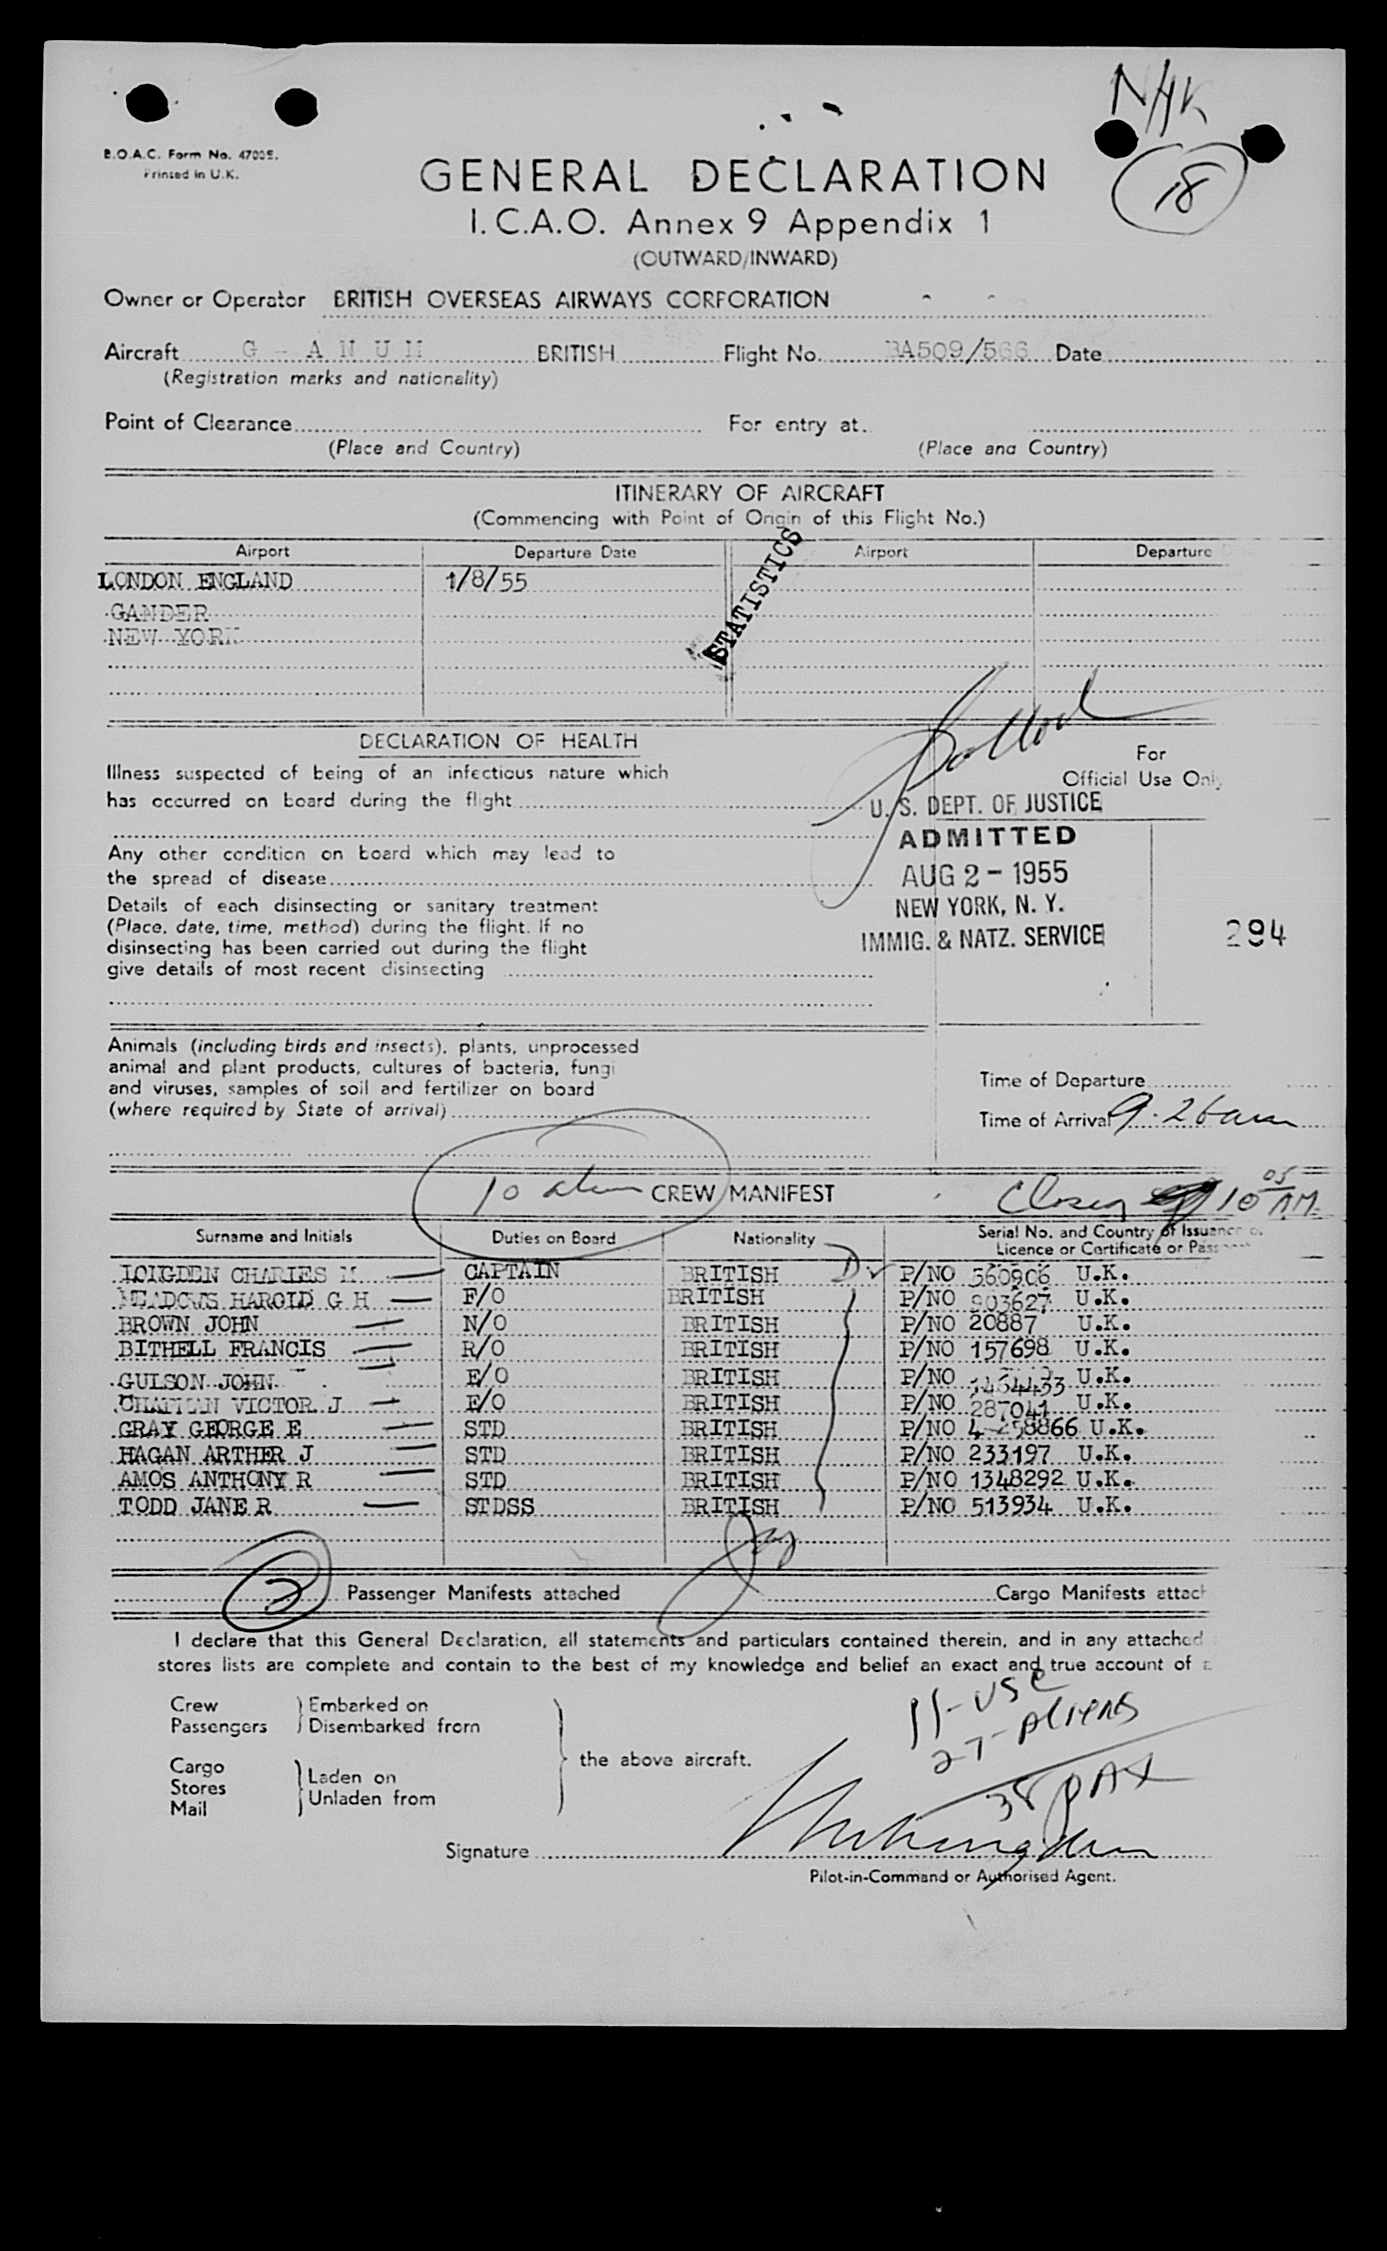 NHK
18
B.O.A.C. Form No.
Printed in U.K.
GENERAL DECLARATION
I.C.A.O. Annex 9 Appendix 1
(OUTWARD/INWARD)
Owner or Operator BRITISH OVERSEAS AIRWAYS CORPORATION
Aircraft G - A N U M BRITISH Flight No. BA509/566 Date
(Registration marks and nationality)
Point of Clearance For entry at
(Place and Country) (Place and Country)
ITINERARY OF AIRCRAFT
(Commencing with Point of Origin of this Flight No.)
Airport Departure Date Airport Departure
LONDON ENGLAND 1/8/55
GANDER
NEW YORK
STATISTICS
DECLARATION OF HEALTH
For
Official Use Only
Illness suspected of being of an infectious nature which
has occurred on board during the flight
U. S. DEPT. OF JUSTICE
ADMITTED
Any other condition on board which may lead to
the spread of disease
AUG 2 - 1955
NEW YORK, N. Y.
IMMIG. & NATZ. SERVICE
294
Details of each disinsecting or sanitary treatment
(Place, date, time, method) during the flight. If no
disinsecting has been carried out during the flight
give details of most recent disinsecting
Animals (including birds and insects), plants, unprocessed
animal and plant products, cultures of bacteria, fungi
and viruses, samples of soil and fertilizer on board
(where required by State of arrival)
Time of Departure
Time of Arrival 9.26am
10 alien CREW MANIFEST
10 05 AM
Surname and Initials Duties on Board Nationality Serial No. and Country of Issuance
Licence or Certificate or Pass
CHARLES M CAPTAIN BRITISH P/NO 360906 U.K.
MEADOWS HAROLD G H F/O BRITISH P/NO 903627 U.K.
BROWN JOHN N/O BRITISH P/NO 20887 U.K.
BITHELL FRANCIS R/O BRITISH P/NO 157698 U.K.
GULSON JOHN E/O BRITISH P/NO U.K.
VICTOR J E/O BRITISH P/NO 287041 U.K.
GRAY GEORGE E STD BRITISH P/NO U.K.
HAGAN ARTHER J STD BRITISH P/NO 233197 U.K.
AMOS ANTHONY R STD BRITISH P/NO 1348292 U.K.
TODD JANE R STDSS BRITISH P/NO 513934 U.K.
2 Passenger Manifests attached Cargo Manifests attach
I declare that this General Declaration, all statements and particulars contained therein, and in any attached
stores lists are complete and contain to the best of my knowledge and belief an exact and true account of
11-USC
27-Aliens
38 PAX
Crew Embarked on
Passengers Disembarked from
the above aircraft.
Cargo
Stores Laden on
Mail Unladen from
Signature
Pilot-in-Command or Authorised Agent.